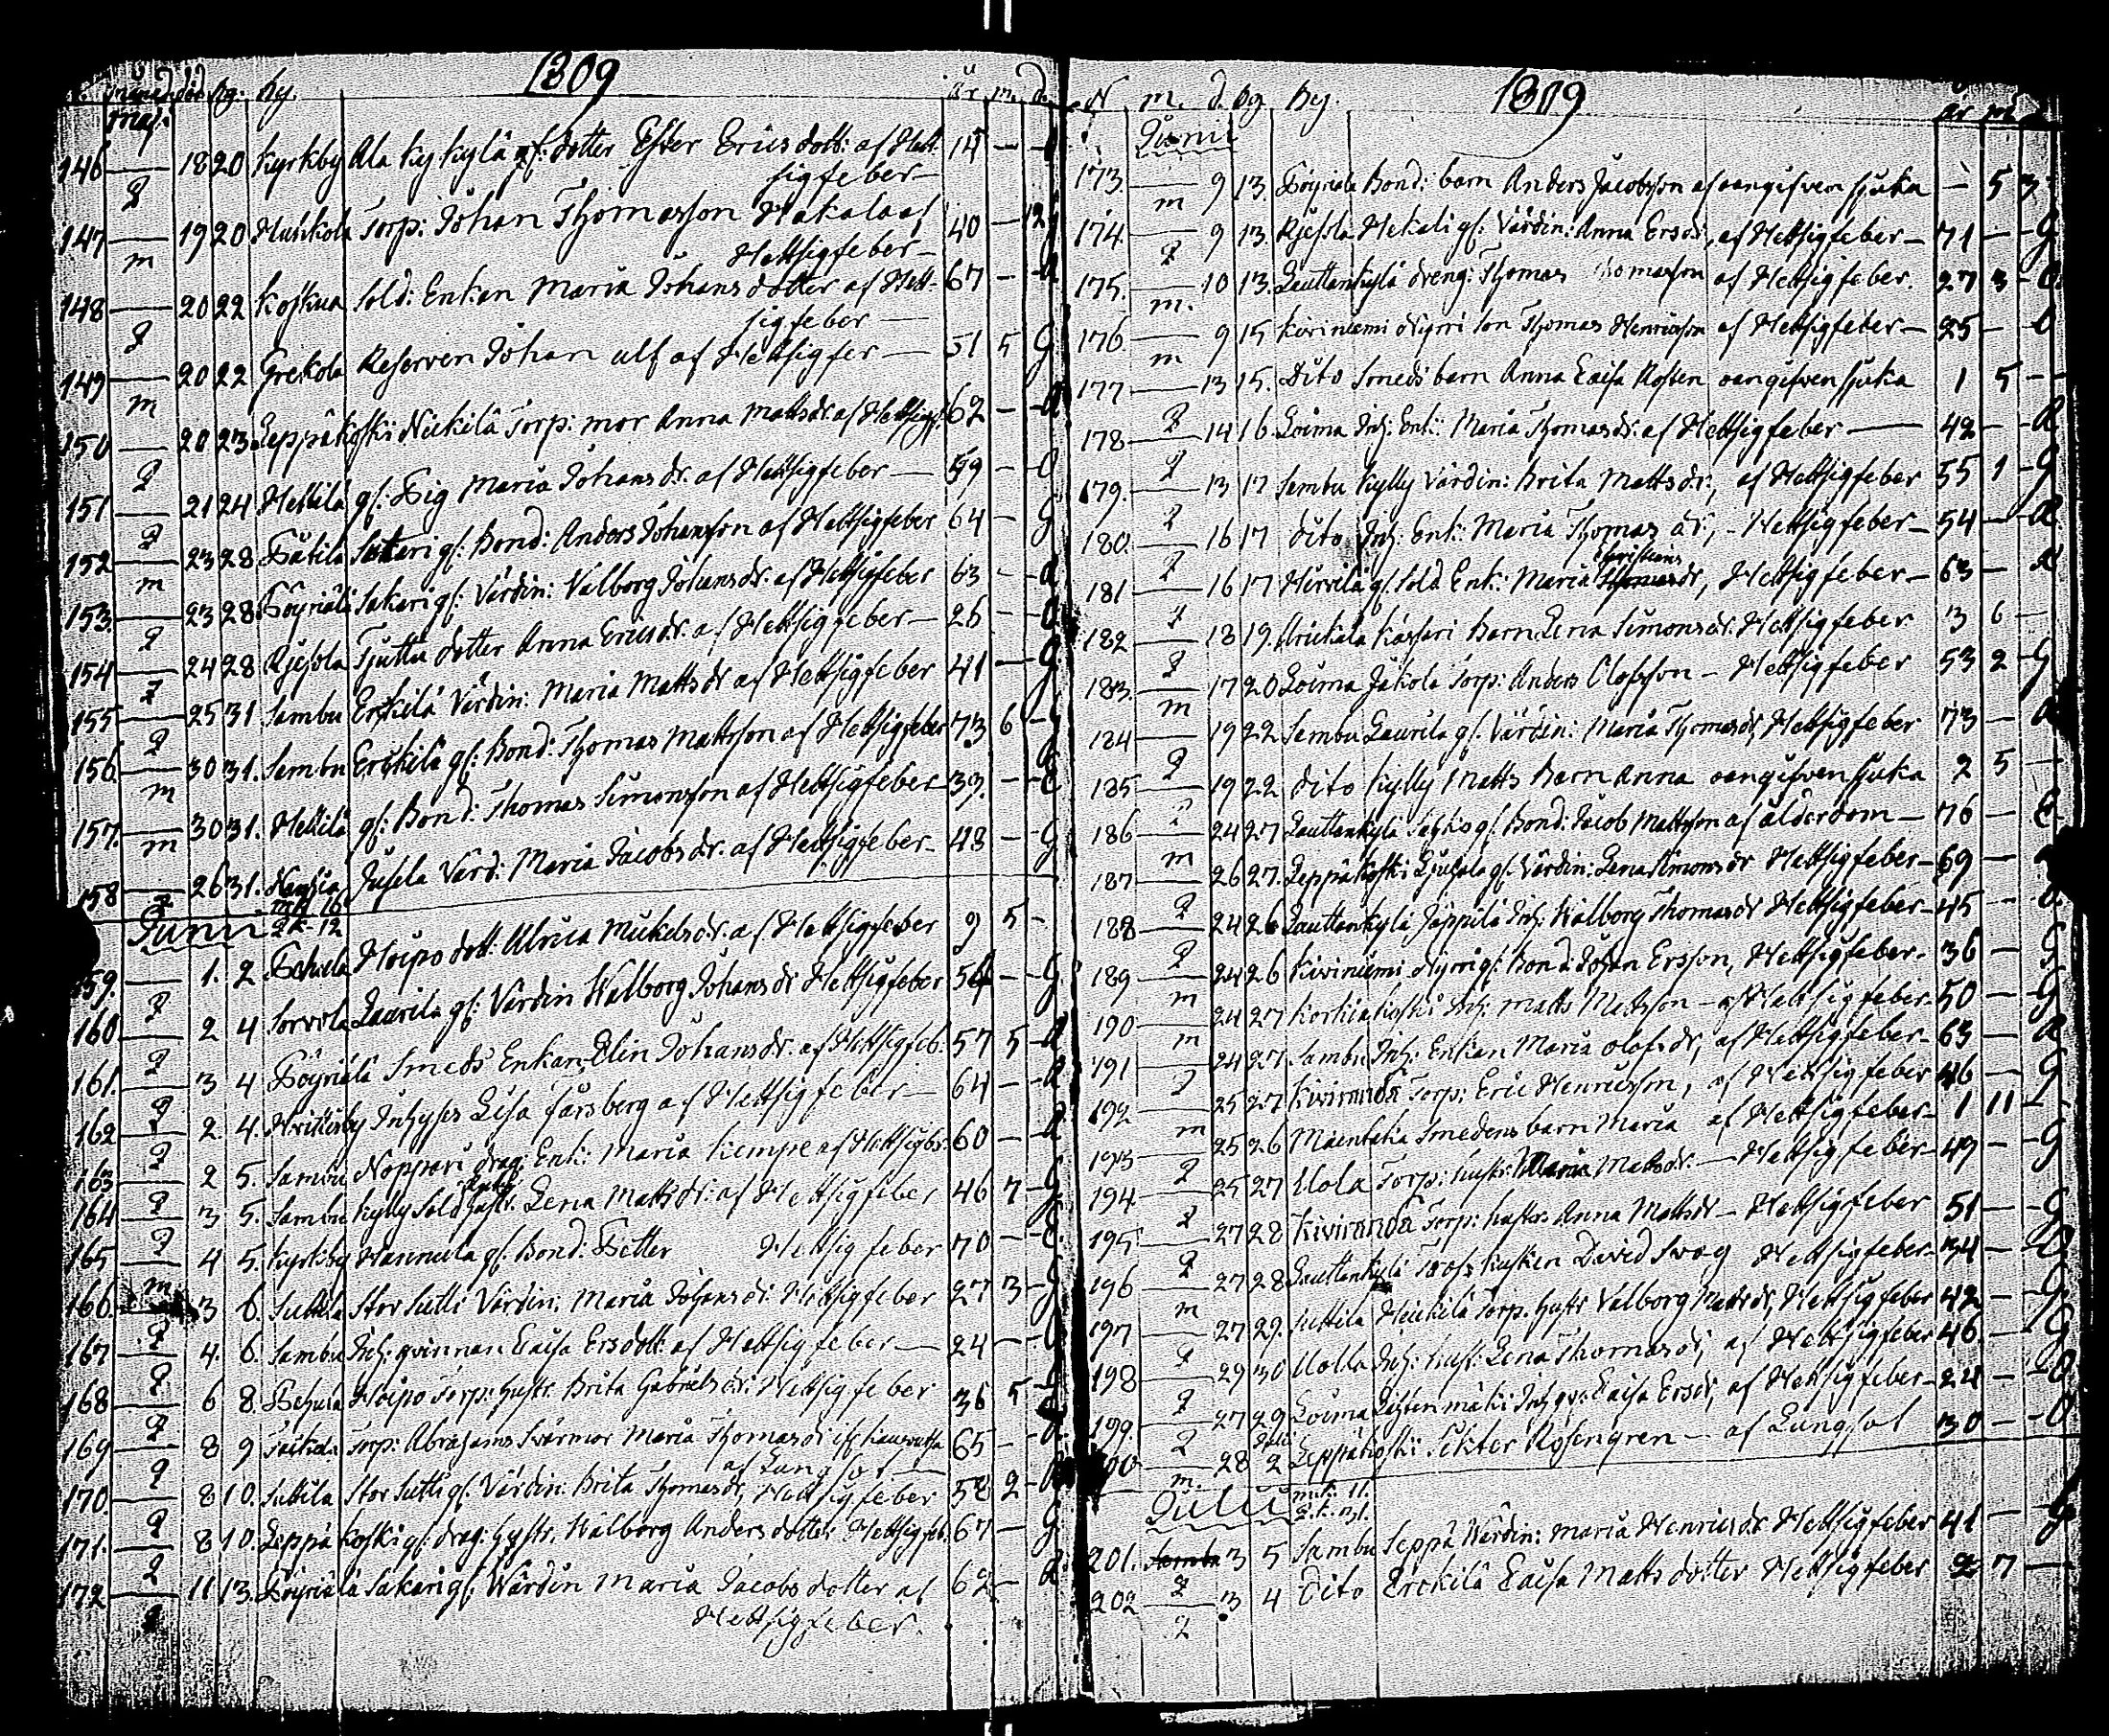 1809
Maj.
år m. d.
146 18 20 Kyrkby Ala Kykylä gf: dotter Ester Ericsdott: af Hett- 14 — —
sigfeber —
147 m 19 20 Huhkola Torp: Johan Thomasson Hakala af 40 — 12 g
Hettsigfeber —
148 20 22 Koskua Sold: Enkan Maria Johansdotter af Hett- 67 — —
sigfeber —
149 m 20 22 Grekola Reserven Johan Ulf af Hettsigfer — 51 5 G
150 20 23 Leppäkoski Nickilä Torp: mor Anna Mattsdr. af Hettsigf. 62 — —
151 21 24 Heikilä gf: Pig Maria Johansdr. af Hettsigfeber — 59 — —
152 m 23 28 Pätilä Sakari gf: Bond: Anders Johansson af Hettsigfeber 64 — G
153. 23 28. Pöyriälä Sakari gf: Värdin: Valborg Johansdr. af Hettsigfeber 63 — —
154 24 28 Äjessla Tjuttu dotter Anna Ericsdr. af Hettsigfeber — 26 — —
155 25 31 Sambu Erckilä Värdin: Maria Mattsdr af Hettsigfeber 41 — G.
156. m 30 31. Sambu Erckilä gf: Bond: Thomas Mattsson af Hettsigfeber 73 6 — G
157. m 30 31. Heikilä gf: Bond: Thomas Simonsson af Hettsigfeber 39. — —
158 26 31. Jusela Värd: Maria Jacobsdr. af Hettsigfeber — 48 — G
mk 16
Junii 2K. 12
159. 1. 2 Pehula Hoipo dott: Ulrica Mickelsdr. af Hettsigfeber 9 5 —
160 2 4 Sorvola Laurila gf: Värdin Walborg Johansdr Hettsigfeber 54 — G.
161. 3 4 Pöyriälä Smeds Enkan, Elin Johansdr. af Hettsigfeb. 57 5 —
162 2 4. Inhyses Lisa Färsberg af Hettsigfeber — 64 — —
163 2 5. Sambu Noppari drag: Enk: Maria Kempe af Hettsigbr. 60 — —
164 3 5. Sambu Kylly Sold hustr. Lena Mattsdr. af Hettsigfeber 46 7 — G
165 m. 4 5. Kyrkby Hannula gf. Bond: Petter Hettsigfeber 70 — E.
166. 3 6. Suttila Stor Sutti Värdin: Maria Johansdr: Hettsigfeber 27 3 — G
167 4. 6. Sambu Inh: qvinnan Caisa Ersdott: af Hettsigfeber — 24 — —
168 6 8. Pehula Hoipo Torp: hustr. Brita Gabrielsdr: Hettsigfeber 36 5 —
169 8 9 Torp: Abrahams Svärmor Maria Thomasdr 65 —
af Lungsot —
170. 8 10. Suttila Stor Sutti gf. Värdin: Brita Thomasdr, Hettsigfeber 58 2 —
171. 8 10. Leppäkoski gf: drag: hustr. Walborg Andersdotter Hettsigfeb. 67 — G.
172 11 13. Pöyriälä Sakari gf. Wärdin Maria Jacobsdotter af 62 —
Hettsigfeber.
N m. d. Bg Bej. 1809 år m
Junii
173 m 9 13. Pöyriälä Bond: barn Anders Jacobsson af oangifven sjuka — 5 3
174 9 13. Äjessla Hekali gf: Värdin: Anna Ersdr, af Hettsigfeber — 71 — G
175. m. 10 13. Lauttankylä dreng: Thomas Thomasson af Hettsigfeber. 27 3 — O
176 m 9 15 Kiviniemi Nyrri Son Thomas Henricsson af Hettsigfeber — 25 — O
177 13 15. Dito Smeds barn Anna Caisa Rosten oangifven sjuka 1 5 —
178 14 16. Loima Inh: Enk: Maria Thomasdr. af Hettsigfeber — 42 — —
179. 13 17 Sambu Kylly Värdin: Brita Mattsdr:, af Hettsigfeber 55 1 — G
180. 16 17 Dito Inh: Enk: Maria Thomasdr, — Hettsigfeber — 54 — —
Christians
181 16 17 Hirvilä gf. Sold Enk: Maria Thomasdr, Hettsigfeber — 63 — —
182 18 19. Kassari Barn Lena Simonsdr. Hettsigfeber 3 6 —
183. m 17 20 Loima Jakola Torp: Anders Olofsson — Hettsigfeber 53 2 — G
184 19 22 Sambu Laurila gf. Värdin: Maria Thomasdr Hettsigfeber 73 — —
185 19 22 Dito Kylly Matts Barn Anna oangifven sjuka 2 5 —
186 m 24 27 Lauttankylä gf. Bond: Jacob Mattsson af ålderdom — 76 — E
187 26 27. Leppäkoski gf. Värdin: Lena Simonsdr Hettsigfeber — 69 — —
188 24 26 Lauttankylä Jäppilä Inh: Walborg Thomasdr Hettsigfeber — 45 — —
189 m 24 26 Kiviniemi Nyrri gf: Bond: Johan Ersson, Hettsigfeber. 36 — G
190 m 24 27 Korkiakoski Inh: Matts Mattsson — af Hettsigfeber — 50 — G
191 24 27. Sambu Inh: Enkan Maria Olofsdr, af Hettsigfeber — 63 — —
192 m 25 27 Kiviranda Torp: Eric Henricsson, af Hettsigfeber 46 — G
193 25 26 Mäentaka Smedens barn Maria af Hettsigfeber — 1 11 —
194 25 27 Uola Torp: hustr: Maria Mattsdr. — Hettsigfeber — 49 — G
195 27 28 Kiviranda Torp: hustr Anna Mattsdr — Hettsigfeber 51 — G
196 m 27 28 Lauttankylä David Svag Hettsigfeber — 34 —
197 27 29. Suttila Heickilä Torp. hustr Valborg Mattsdr, Hettsigfeber 42 — G
198 29 30 Uolla Inh: hust: Lena Thomasdr, af Hettsigfeber 46. — G
199. 27 29 Loima Inh: qv: Caisa Ersdr, af Hettsigfeber — 24 —
200 m. 28 2 Leppäkoski Rosengren — af Lungsot 30 — —
Julii m.k: 11. 2.k. 31.
201. 3 5 Sambu Seppä Wärdin: Maria Henricsdr Hettsigfeber 41 — G
202 3 4 Dito Erckilä Caisa Mattsdotter Hettsigfeber 2 7 —